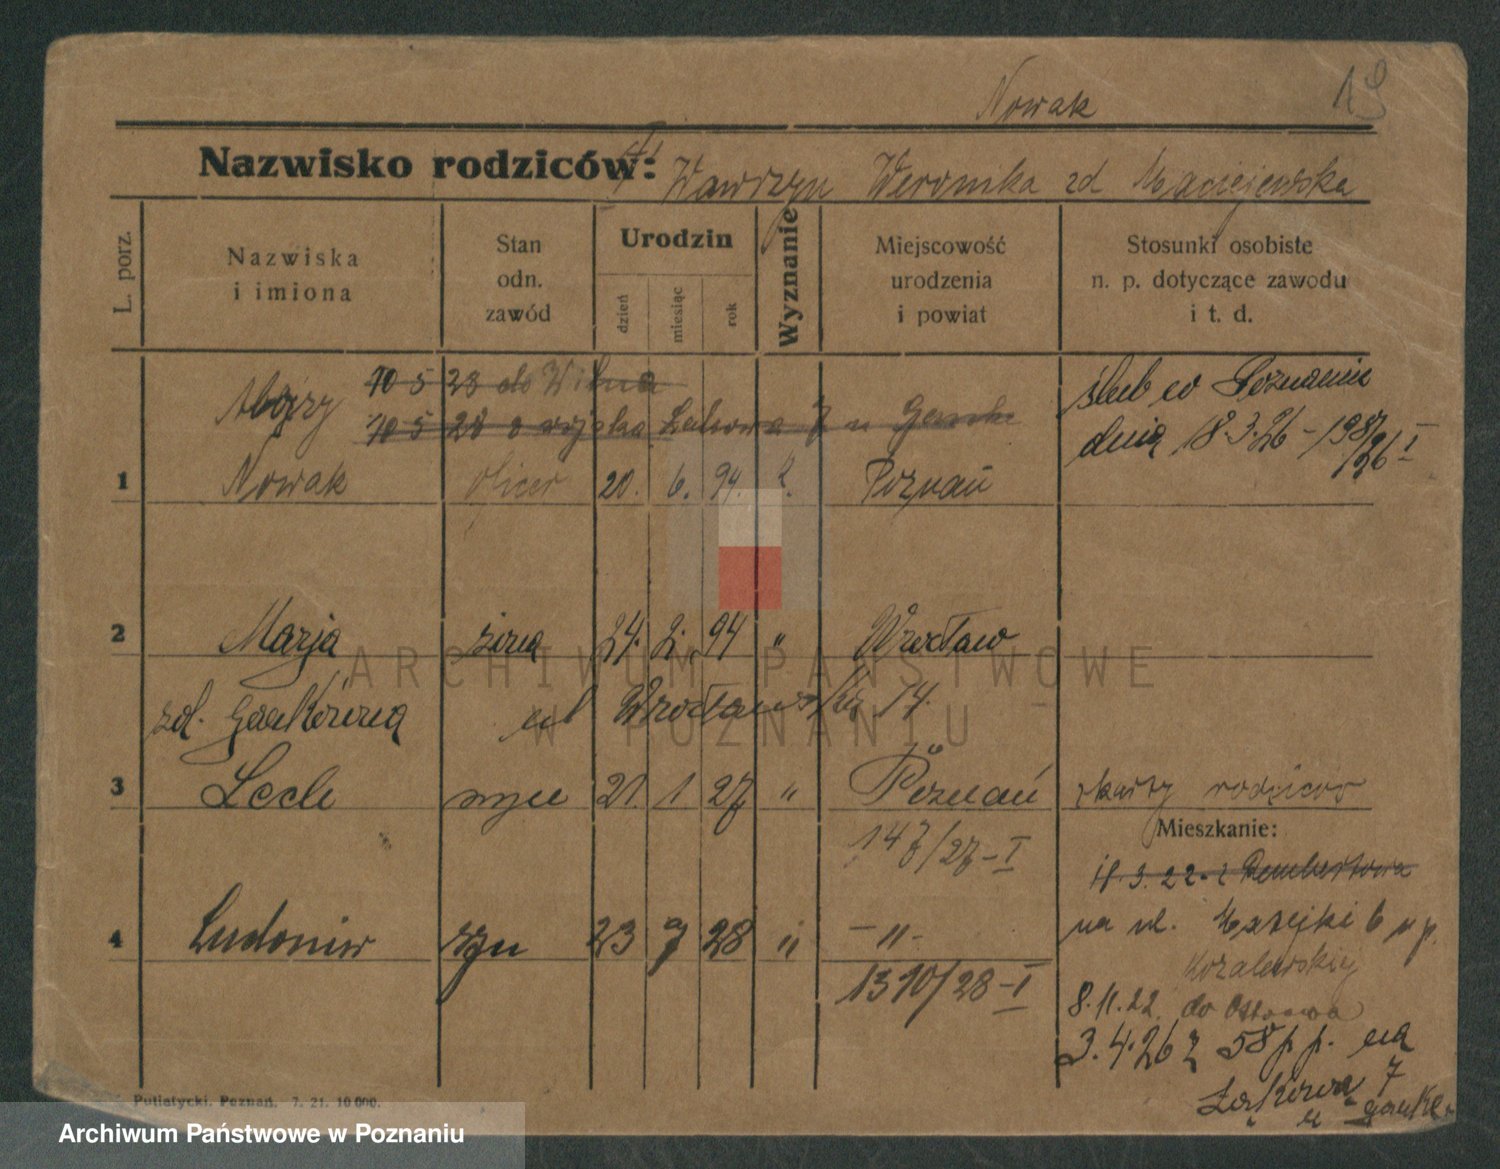 Nowak 19
Nazwisko rodziców: Wawrzyn Weronika zd Maciejewska
L. porz.
Nazwiska
i imiona
Stan
odn.
zawód
Urodzin
dzień
miesiąc
rok
Wyznanie
Miejscowość
urodzenia
i powiat
Stosunki osobiste
n. p. dotyczące zawodu
i t. d.
10 5 28 do Wilna
10 5 28 Łąkowa 7
ślub w Poznaniu
dnia 18.3.26 – 198/26 I
1 Nowak oficer 20. 6. 94. Poznań
2 Marja żona 24. 2. 94 " Wrocław
zd. ul Wrocławska 14.
3 Lech syn 21. 1 27 " Poznań z karty rodziców
147/27-I
Mieszkanie:
18.3.22 z Rembertowa
4 Ludomir syn 23 9 28 " –"–
na ul. Matejki 6 u p.
1310/28-I
8.11.22. do Ostrowa
3.4.26 z 58 p.p. na
Łąkową 7
u
Putiatycki. Poznań. 7. 21. 10 000.
ARCHIWUM PAŃSTWOWE
W POZNANIU
Archiwum Państwowe w Poznaniu